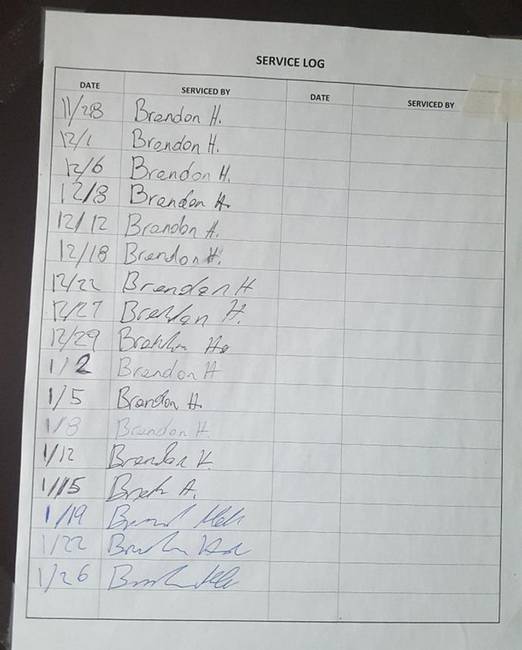 SERVICE LOG
DATE SERVICED BY DATE SERVICED BY
11/28 Brendon H.
12/1 Brendon H.
12/6 Brendon H.
12/8 Brendon H.
12/12 Brendon H.
12/18 Brendon H.
12/22 Brendon H
12/27 Brendon H.
12/29 H
1/2 Brendon H
1/5 Brendon H.
1/8 Brendon H
1/12 Brendon H
1/15
1/19
1/22
1/26